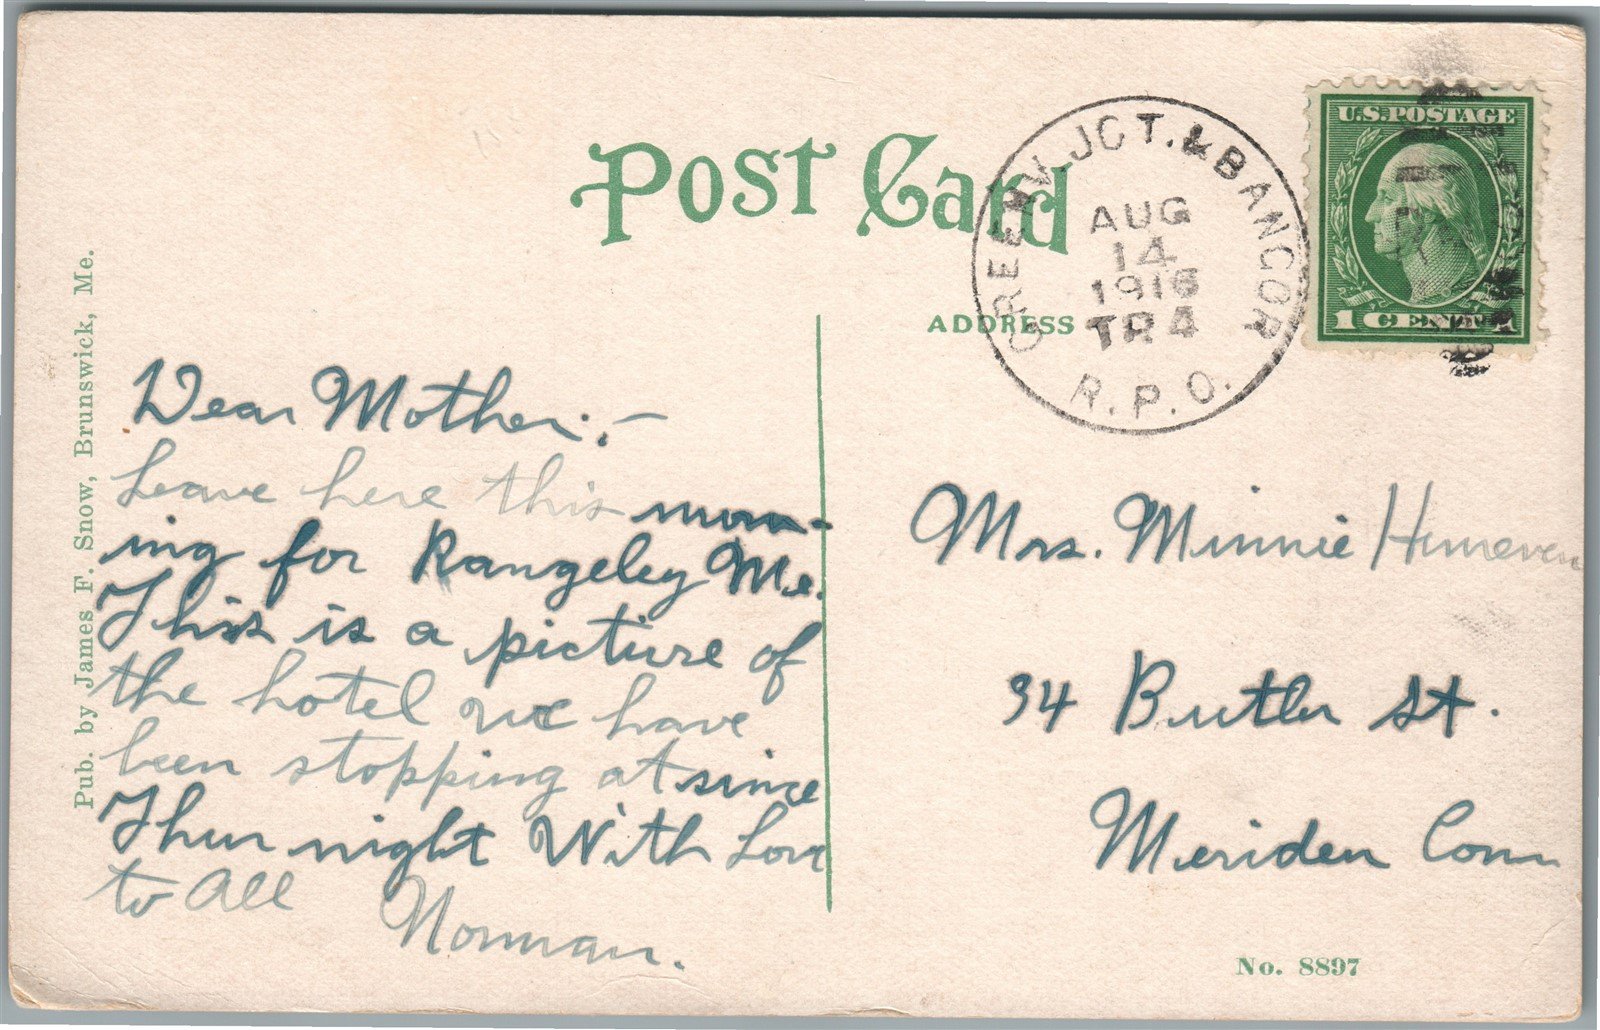 POST Card
GREENV. JCT. & BANGOR
AUG
14
1916
TR 4
R.P.O.
U.S. POSTAGE
1 CENT 1
ADDRESS
Pub. by James F. Snow, Brunswick, Me.
Dear Mother:-
Leave here this morn-
ing for Rangeley Me.
This is a picture of
the hotel we have
been stopping at since
Thur night With Love
to all
Norman.
Mrs. Minnie
34 Butler St.
Meriden Conn
No. 8897